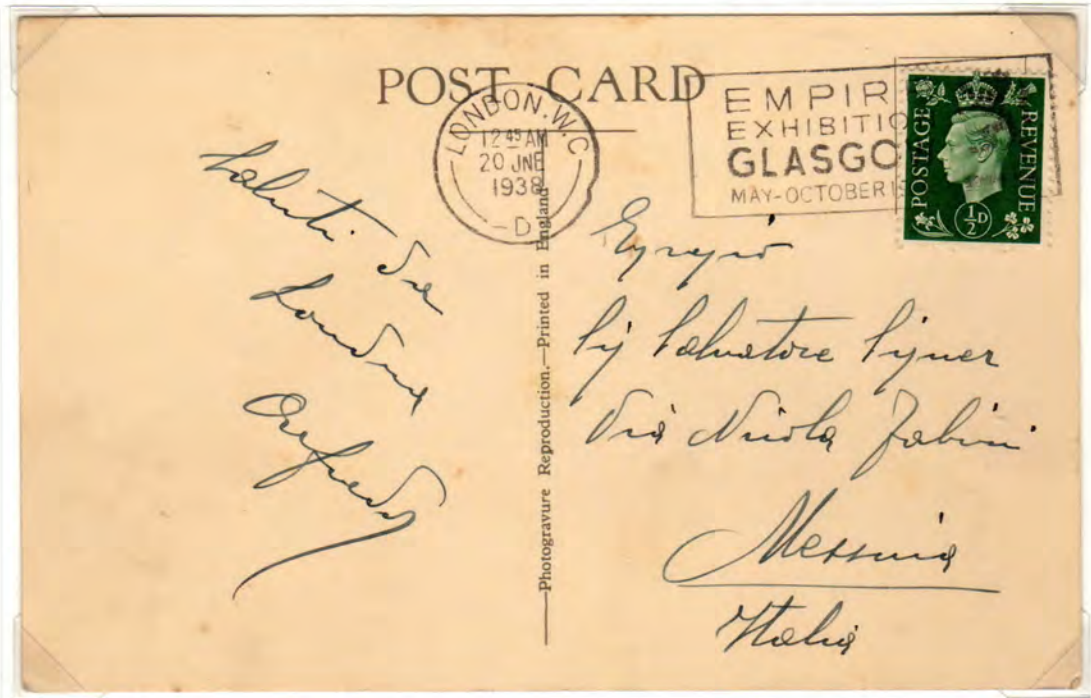 POST CARD
LONDON.W.C
12 45 AM
20 JNE
1938
- D
EMPIR
EXHIBITIO
GLASGO
MAY-OCTOBER 19
POSTAGE
REVENUE
½D
Saluti da
Londra
Alfredo
—Photogravure Reproduction.—Printed in England
Egregio
Sig Salvatore
Via Nicola Fabrizi
Messina
Italia